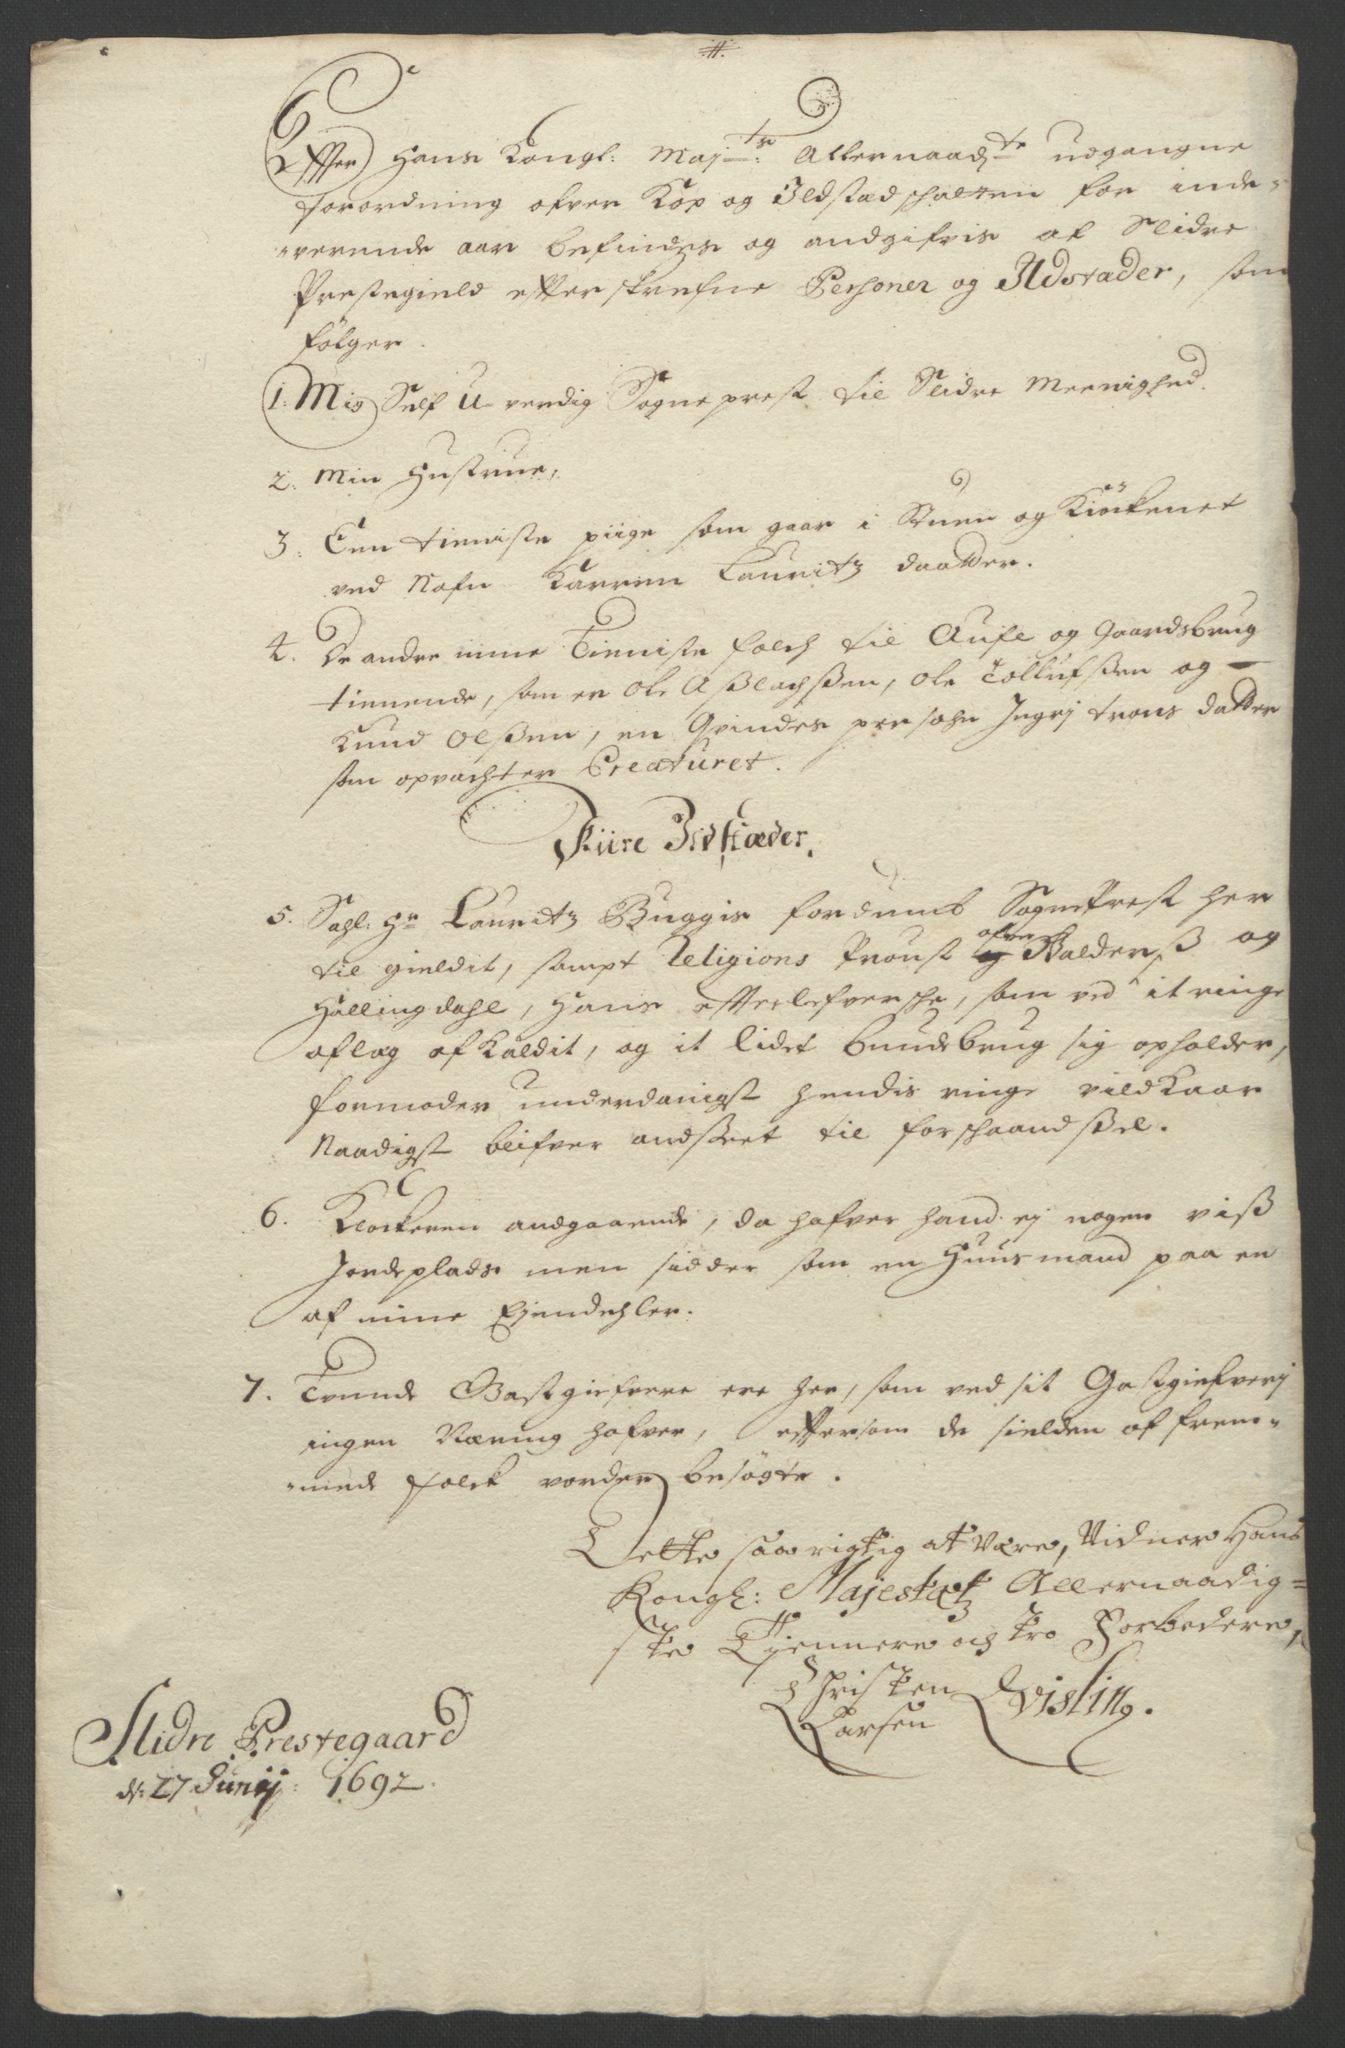 #
Effter Hans Kongl: Maj:ts Allernaadste udgangne
forordning ofver Kop og Ildstædschatten for inde-
werende aar befindes og andgifvis af Slidre
Prestegield effterskrefne Personer og Ildstæder, som
følger.
1. Mig Self U-verdig Sogneprest til Slidre Meenighed.
2. Min Hustrue,
3. Een tieniste piige som gaar i Stuen og Kiøckenet
ved Nafn Karren Lauritz daatter.
4. De andre mine Tieniste folch til Aufle og Gaardsbrug
tienende, som er Ole Aßlachßen, Ole Tollufßen og
Knud Olßen, en Qvindes persohn Ingrj trons datter
som opvachter Creaturet.
Fiire Ildstæder.
5. Sahl: Hr Lauritz Buggis fordumb SognePrest her
til gieldit, sampt Religions Proust ofver Walderß og
Hallingdahl, Hans effterlefversche, som ved it ringe
aflag af Kaldit, og it lidet bundebrug sig opholder,
formoder underdanigst hendis ringe vildkaar
Naadigst blifver andseet til forschaandßel.
6. Klockeren andgaaende, da hafver hand ej nogen viß
Jordeplads men sidder som en Huusmand paa en
af mine Ejendehler.
7. Tvende Gastgiefvere ere her, som ved sit Gastgiefverj
ingen Næring hafver, efftersom de sielden af frem-
mede folck vorder besøgte.
Dette saa rigtig at være, Vidner Hans
Kongl: Majestætz Allernaadig-
ste Tjennere och tro Forbedere,
Christen Qvisling.
Larsen
Slidre Prestegaard
d: 27 Junij: 1692.